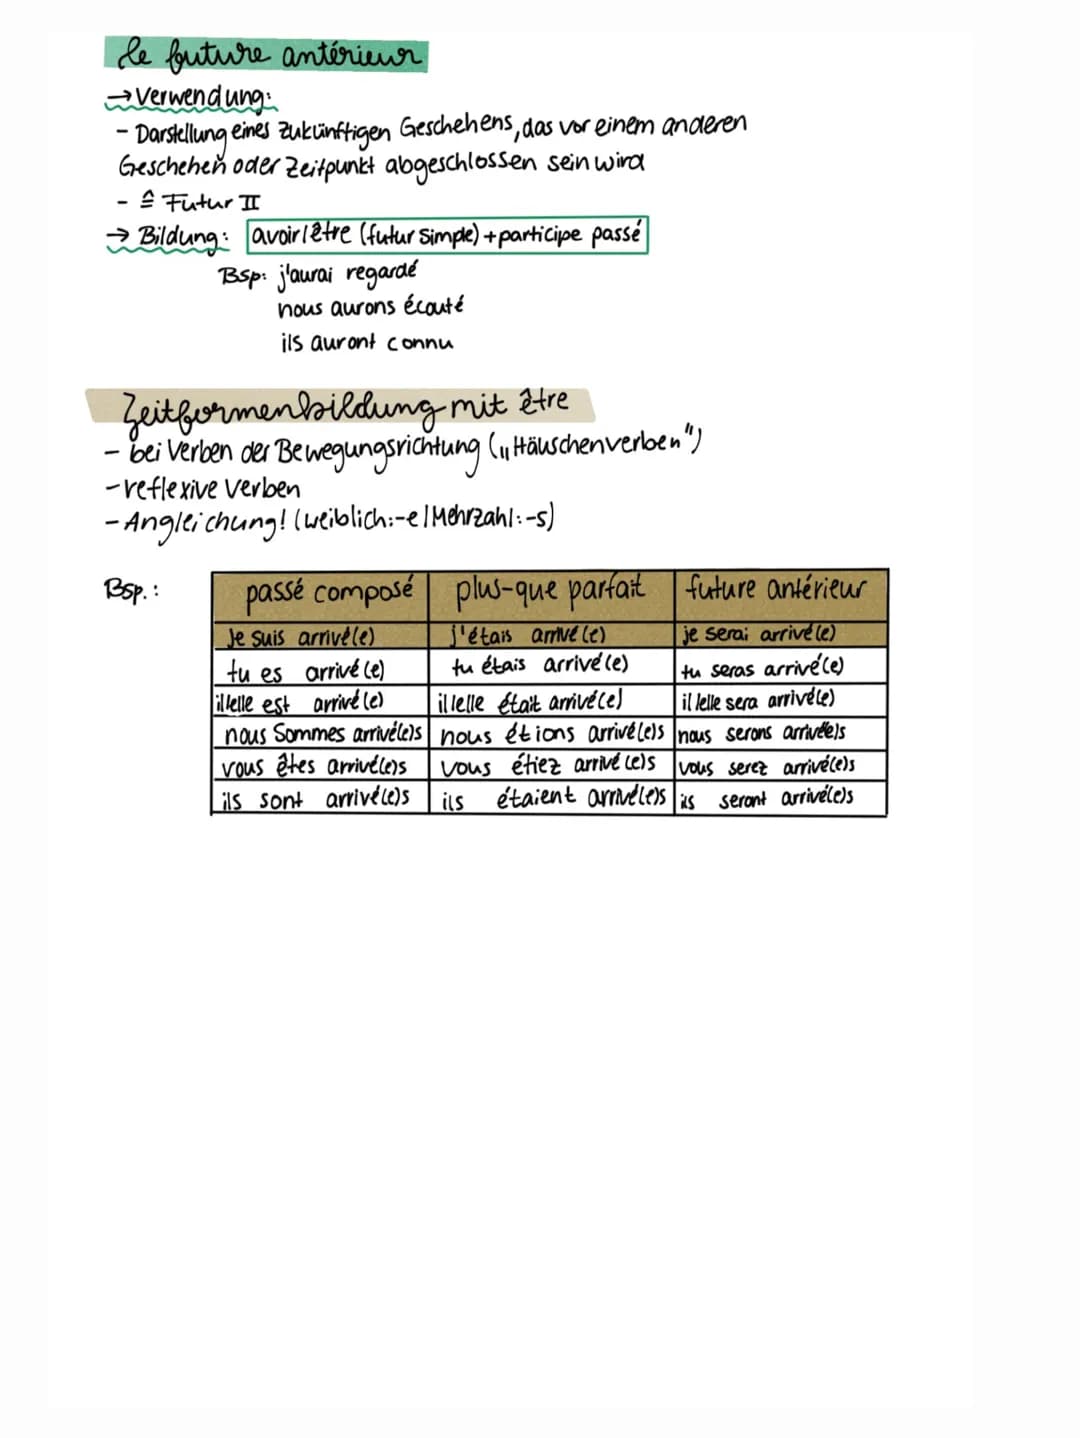 le future antérieur
→Verwendung:
- Darstellung eines zukünftigen Geschehens, das vor einem anderen
Geschehen oder Zeitpunkt abgeschlossen sein wird
- ≙ Futur II
→ Bildung: avoir/être (futur simple) + participe passé
Bsp: j'aurai regardé
nous aurons écouté
ils auront connu
Zeitformenbildung mit être
- bei Verben der Bewegungsrichtung („Häuschenverben")
- reflexive Verben
- Angleichung! (weiblich:-e/Mehrzahl:-s)
Bsp.: passé composé plus-que parfait future antérieur
Je suis arrivé(e) j'étais arrivé(e) je serai arrivé(e)
tu es arrivé(e) tu étais arrivé(e) tu seras arrivé(e)
il/elle est arrivé(e) il/elle était arrivé(e) il/elle sera arrivé(e)
nous Sommes arrivé(e)s nous étions arrivé(e)s nous serons arrivé(e)s
vous êtes arrivé(e)s vous étiez arrivé(e)s vous serez arrivé(e)s
ils sont arrivé(e)s ils étaient arrivé(e)s ils seront arrivé(e)s